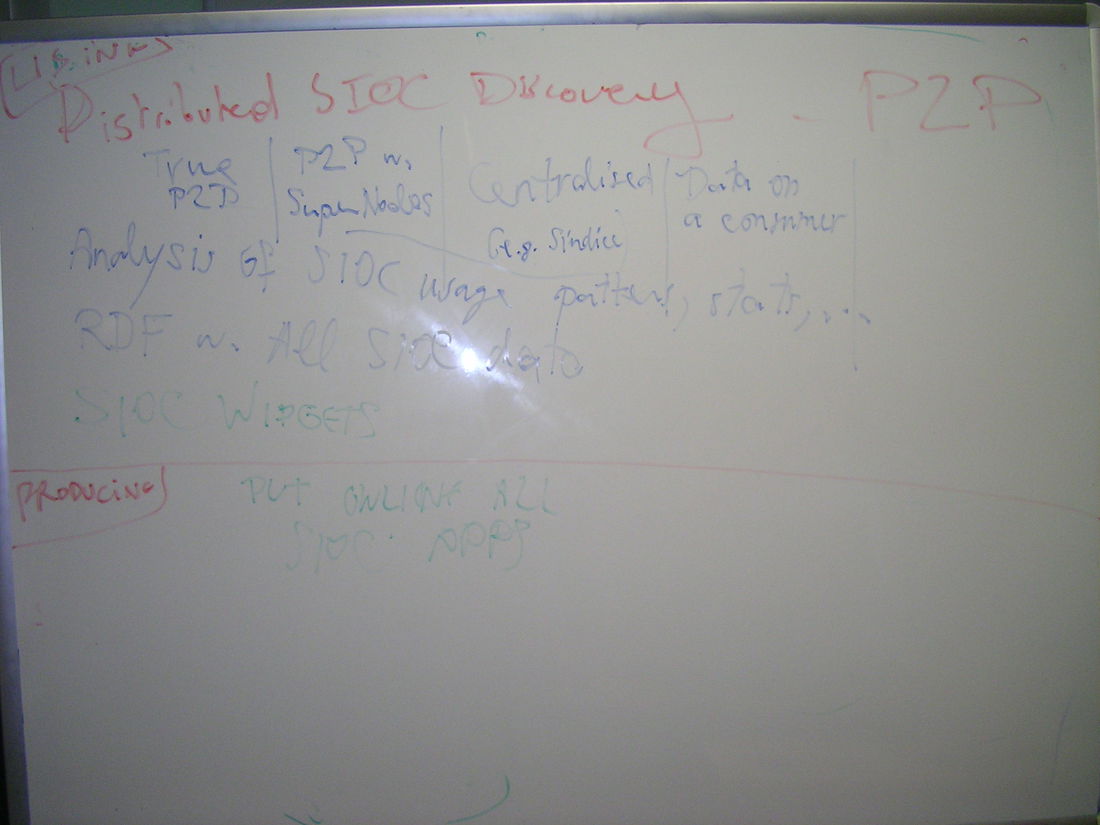 Distributed SIOC Discovery - P2P
True P2P
P2P w. SuperNodes
Centralised (e.g. Sindice)
Data on a consumer
Analysis of SIOC usage patterns, stats, ...
RDF w. All SIOC data
SIOC WIDGETS
PRODUCING
PUT ONLINE ALL
SIOC APPS